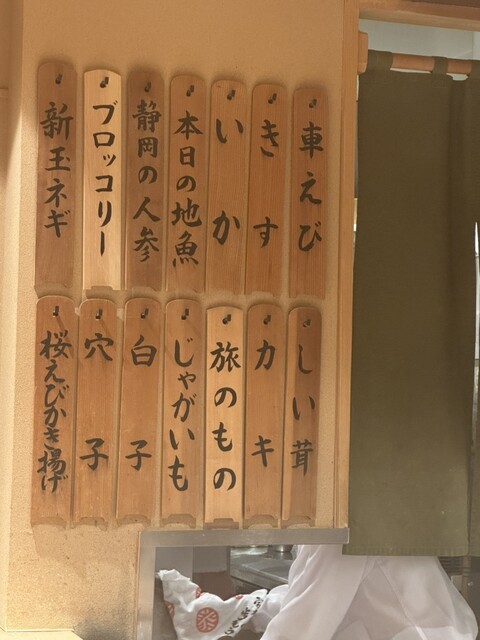 車えび
きす
いか
本日の地魚
静岡の人参
ブロッコリー
新玉ネギ
しい茸
カキ
旅のもの
じゃがいも
白子
穴子
桜えびかき揚げ